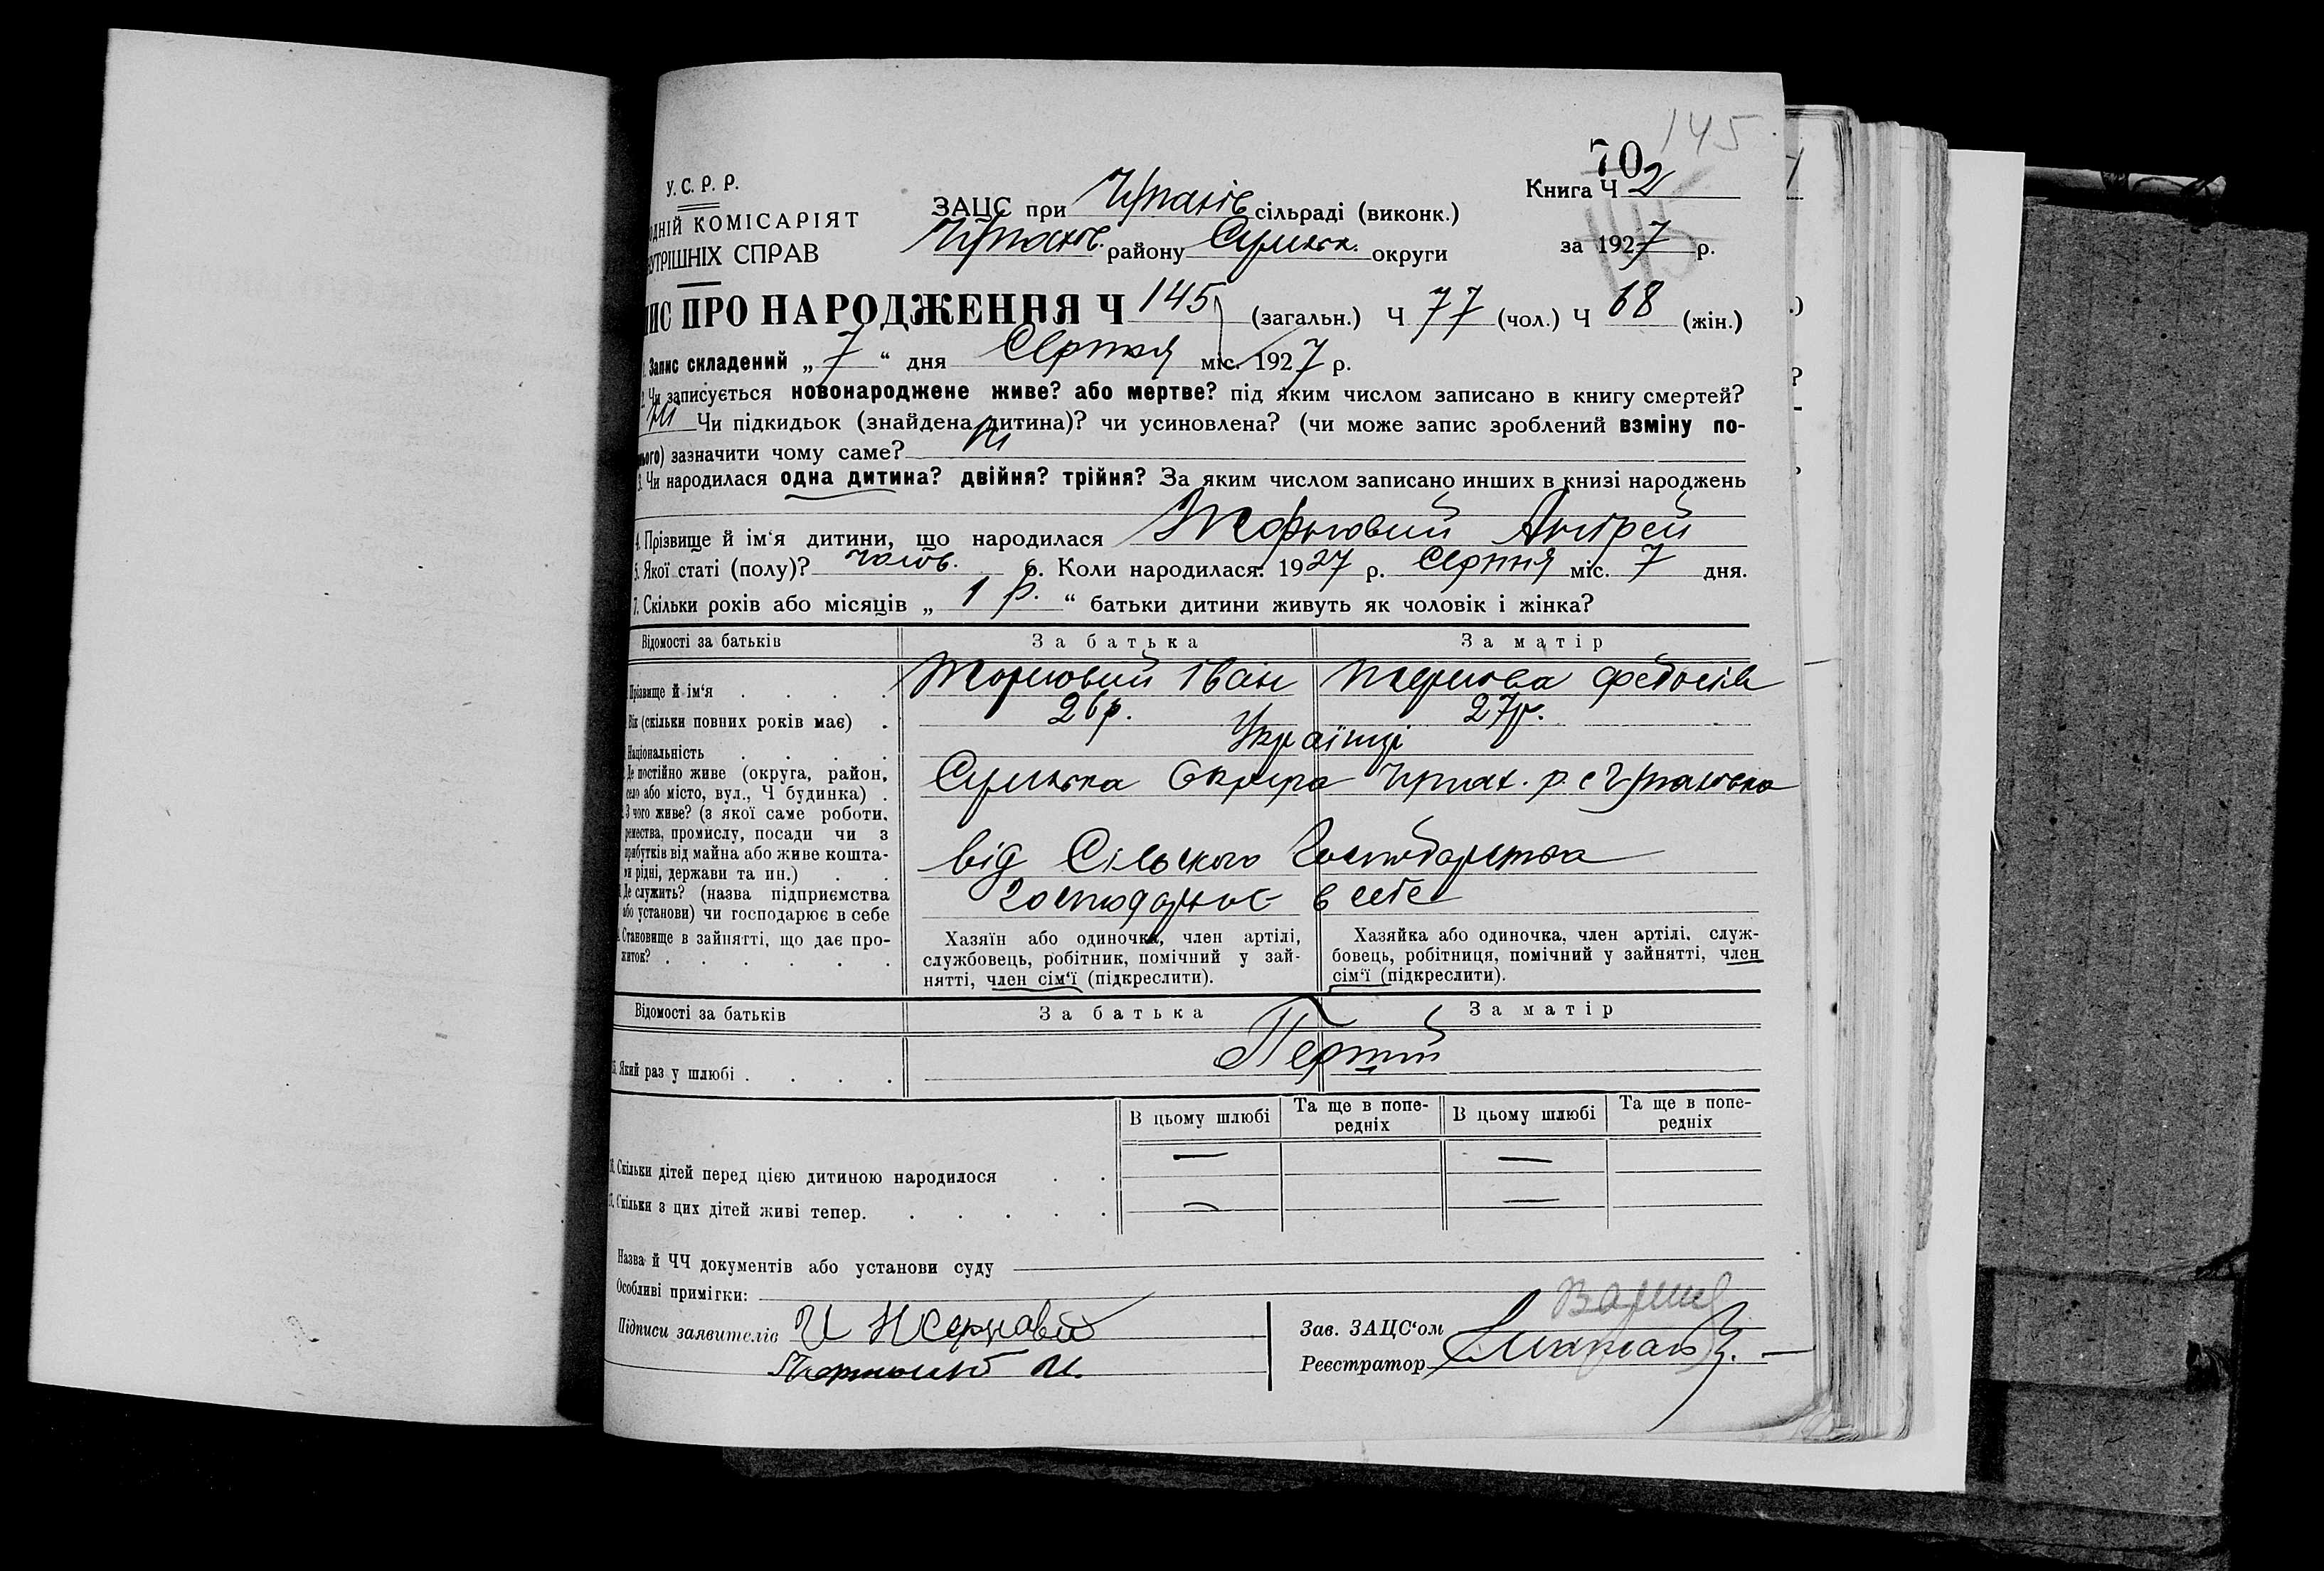 145
70
У.С.Р.Р.
Книга Ч 2
ОДНІЙ КОМІСАРІЯТ
ЗАЦС при сільраді (виконк.)
УТРІШНІХ СПРАВ
району Сумськ. округи
за 1927 р.
145
ИС ПРО НАРОДЖЕННЯ Ч 145 (загальн.) Ч 77 (чол.) Ч 68 (жін.)
1. Запис складений „ 7 “ дня Серпня міс. 1927 р.
2. Чи записується новонароджене живе? або мертве? під яким числом записано в книгу смертей?
Ні Чи підкидьок (знайдена дитина)? чи усиновлена? (чи може запис зроблений взміну по-
нього) зазначити чому саме? Ні
3. Чи народилася одна дитина? двійня? трійня? За яким числом записано инших в книзі народжень
4. Прізвище й ім'я дитини, що народилася Жорновий Андрей
5. Якої статі (полу)? чолов. 6. Коли народилася: 1927 р. Серпня міс. 7 дня.
7. Скільки років або місяців „ 1 р. “ батьки дитини живуть як чоловік і жінка?
Відомості за батьків За батька За матір
Прізвище й ім'я Жорновий Іван
Вік (скільки повних років має) 26 р. 27 р.
Національність Українці
Де постійно живе (округа, район,
село або місто, вул., Ч будинка) Сумська Округа
З чого живе? (з якої саме роботи,
ремества, промислу, посади чи з
прибутків від майна або живе кошта-
ми рідні, держави та ин.) від Сільського Господарства
Де служить? (назва підприємства
або установи) чи господарює в себе господарює в себе
Становище в зайнятті, що дає про-
житок?
Хазяїн або одиночка, член артілі,
службовець, робітник, помічний у зай-
нятті, член сім'ї (підкреслити).
Хазяйка або одиночка, член артілі, служ-
бовець, робітниця, помічний у зайнятті, член
сім'ї (підкреслити).
Відомості за батьків За батька За матір
15. Який раз у шлюбі Перший
В цьому шлюбі Та ще в попе-
редніх В цьому шлюбі Та ще в попе-
редніх
16. Скільки дітей перед цією дитиною народилося — —
17. Скільки з цих дітей живі тепер. — —
Назва й ЧЧ документів або установи суду
Особливі примітки:
Підписи заявителів И Жерновий
Зав. ЗАЦС'ом
Реєстратор